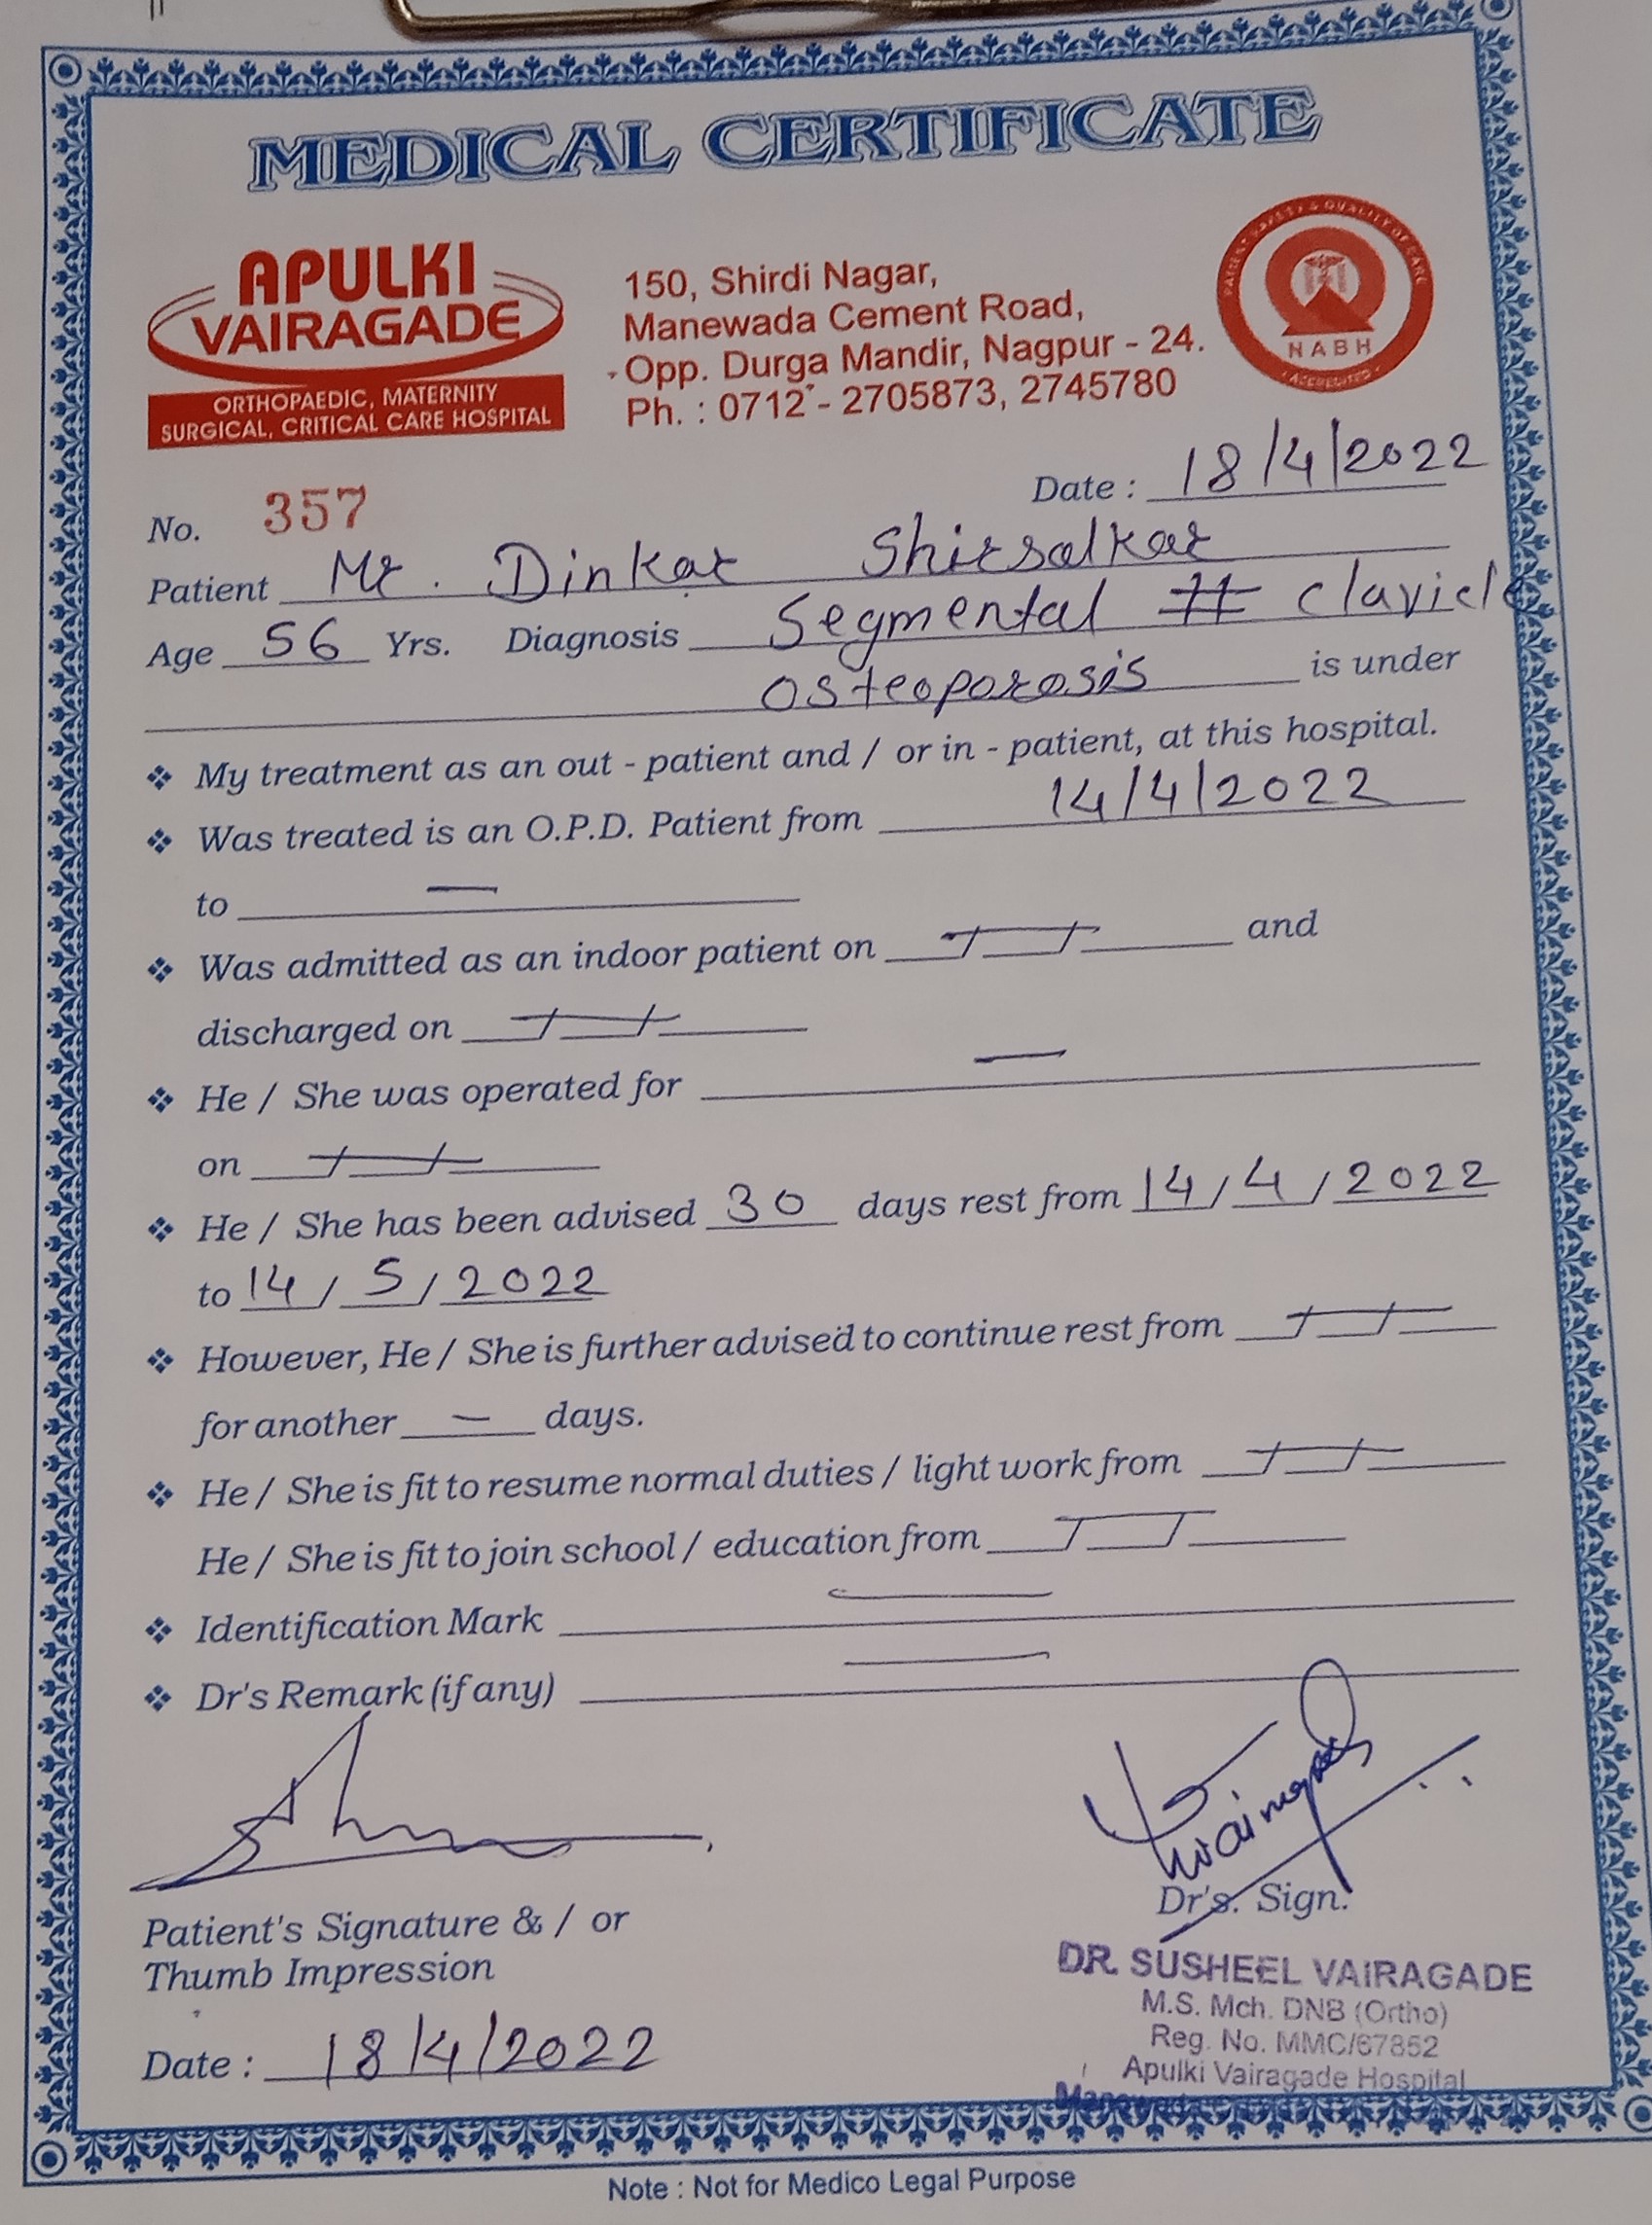 MEDICAL CERTIFICATE
APULKI
VAIRAGADE
ORTHOPAEDIC, MATERNITY
SURGICAL, CRITICAL CARE HOSPITAL
150, Shirdi Nagar,
Manewada Cement Road,
Opp. Durga Mandir, Nagpur - 24.
Ph. : 0712 - 2705873, 2745780
PATIENT SAFETY & QUALITY OF CARE
NABH
ACCREDITED
Date : 18/4/2022
No. 357
Patient Mr. Dinkar Shirsalkar
Age 56 Yrs. Diagnosis Segmental # clavicle
osteoporosis is under
❖ My treatment as an out - patient and / or in - patient, at this hospital.
❖ Was treated is an O.P.D. Patient from 14/4/2022
to —
❖ Was admitted as an indoor patient on / / and
discharged on / /
❖ He / She was operated for —
on / /
❖ He / She has been advised 30 days rest from 14/4/2022
to 14/5/2022
❖ However, He / She is further advised to continue rest from / /
for another — days.
❖ He / She is fit to resume normal duties / light work from / /
He / She is fit to join school / education from / /
❖ Identification Mark —
❖ Dr's Remark (if any) —
Patient's Signature & / or
Thumb Impression
Date : 18/4/2022
Dr's. Sign.
DR. SUSHEEL VAIRAGADE
M.S. Mch. DNB (Ortho)
Reg. No. MMC/67852
Apulki Vairagade Hospital
Note : Not for Medico Legal Purpose